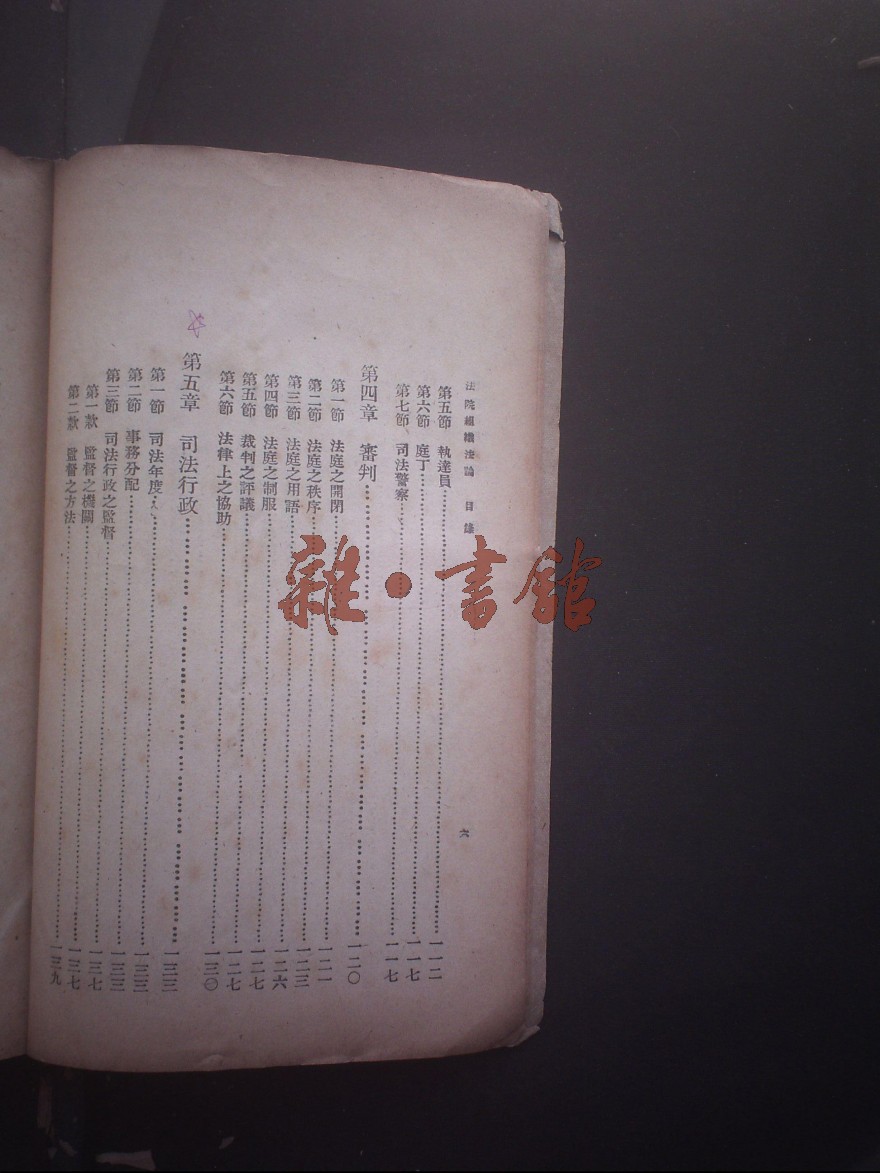 法院組織法論 目錄 六
第五節 執達員……………一一二
第六節 庭丁……………一一七
第七節 司法警察……………一一七
第四章 審判……………一二〇
第一節 法庭之開閉……………一二一
第二節 法庭之秩序……………一二三
第三節 法庭之用語……………一二六
第四節 法庭之制服……………一二七
第五節 裁判之評議……………一二七
第六節 法律上之協助……………一三〇
第五章 司法行政……………一三三
第一節 司法年度……………一三三
第二節 事務分配……………一三三
第三節 司法行政之監督……………一三七
第一款 監督之機關……………一三七
第二款 監督之方法……………一三九
雜·書館